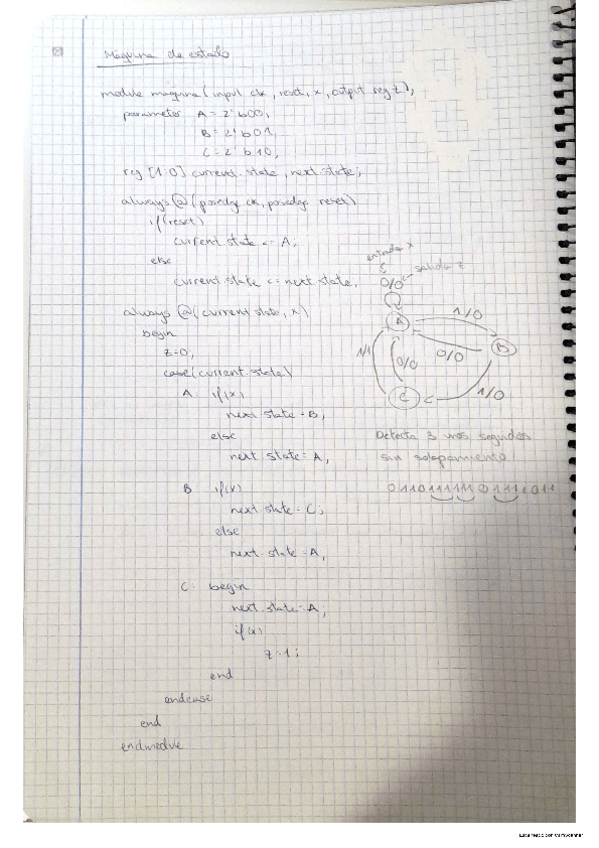 Máquina de estado
module maquina (input clk, reset, x, output reg z);
parameter A = 2'b00,
B = 2'b01,
C = 2'b10;
reg [1:0] current.state, next.state;
always @ (posedge clk, posedge reset)
if (reset)
current.state <= A;
else
current.state <= next.state;
always @ (current.state, x)
begin
z=0;
case (current.state)
A: if(x)
next.state = B;
else
next.state = A;
B: if(x)
next.state = C;
else
next.state = A;
C: begin
next.state = A;
if(x)
z=1;
end
endcase
end
endmodule
entrada x
salida z
0/0
A
1/0
B
1/1
0/0
0/0
C
1/0
Detecta 3 unos seguidos
sin solapamiento